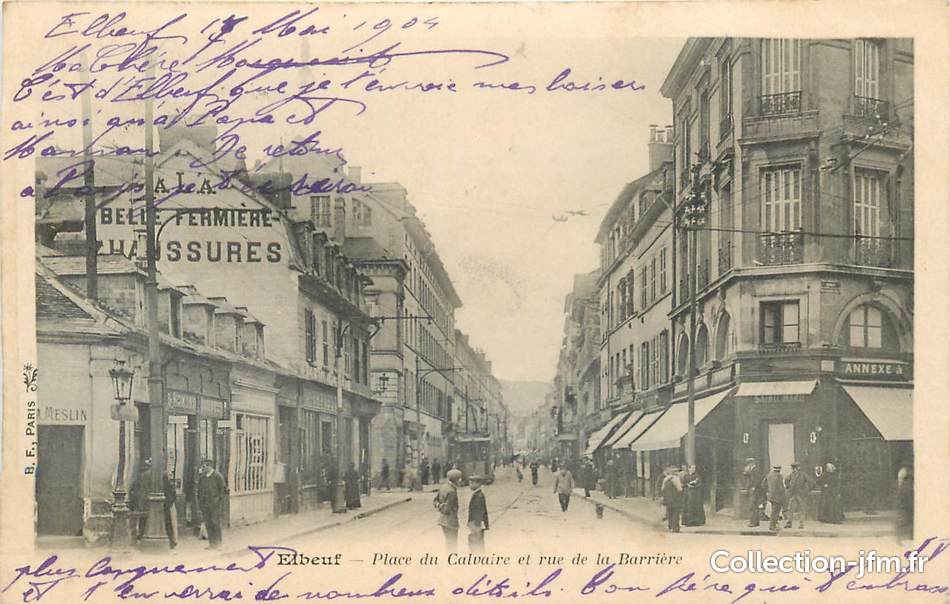 Elbeuf 17 Mai 1904
Ma Chère Marguerite
C'est d'Elbeuf que je t'envoie mes baisers
ainsi qu'à Papa et
Maman. De retour
à Paris je t'écrirai
A LA
BELLE FERMIÈRE
CHAUSSURES
MESLIN
ANNEXE À
B. F., PARIS
Elbeuf — Place du Calvaire et rue de la Barrière
Collection-jfm.fr
plus longuement
et t'enverrai de nombreux détails. Ton père qui t'embrasse